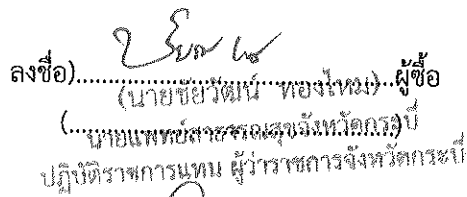 ลงชื่อ)........................................ผู้ซื้อ
(นายชัยวัฒน์ ทองไหม)
(........................................)
นายแพทย์สาธารณสุขจังหวัดกระบี่
ปฏิบัติราชการแทน ผู้ว่าราชการจังหวัดกระบี่